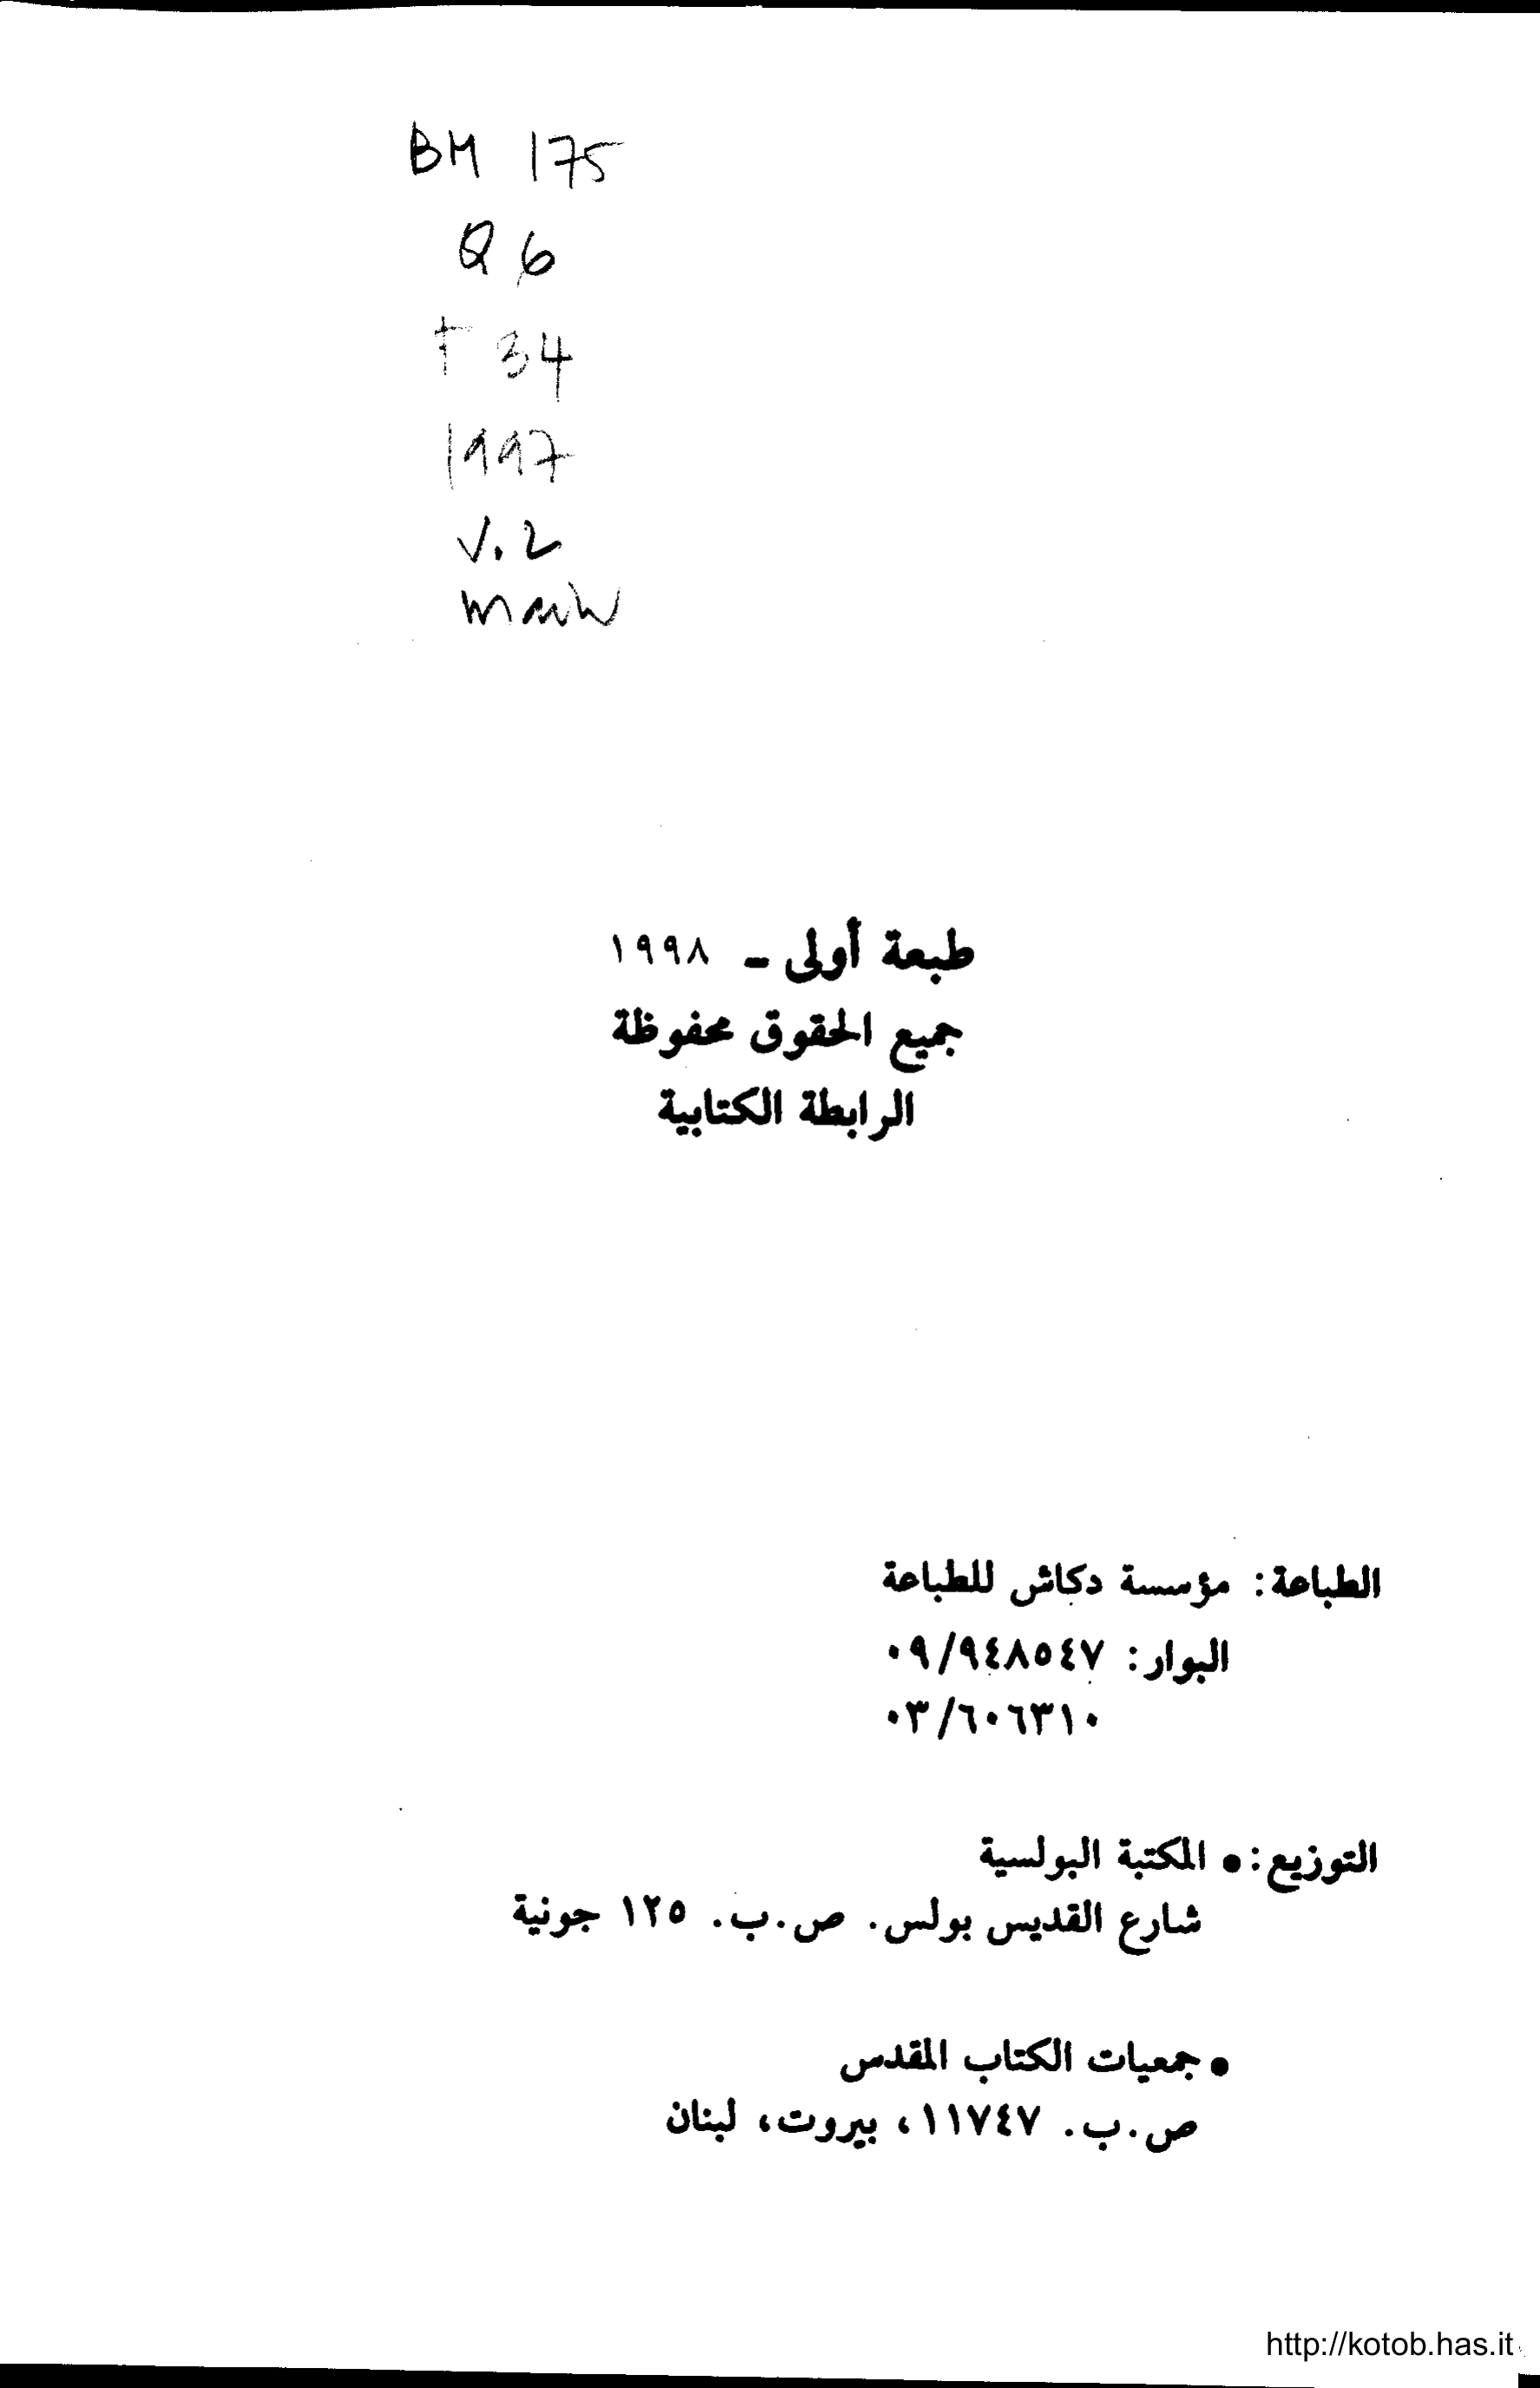 BM 175
Q6
T 34
1997
V.2
main
طبعة أولى - ١٩٩٨
جميع الحقوق محفوظة
الرابطة الكتابية
الطباعة: مؤسسة دكاش للطباعة
البوار: ٠٩/٩٤٨٥٤٧
٠٣/٦٠٦٣١٠
التوزيع: • المكتبة البولسية
شارع القديس بولس. ص.ب. ١٢٥ جونية
• جمعيات الكتاب المقدس
ص.ب. ١١٧٤٧، بيروت، لبنان
http://kotob.has.it